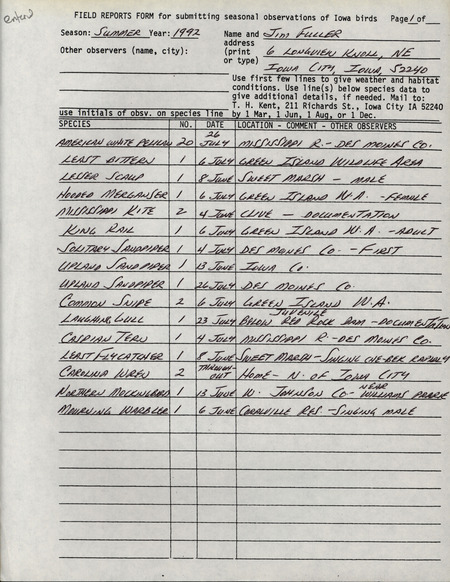 entered
FIELD REPORTS FORM for submitting seasonal observations of Iowa birds Page 1 of
Season: SUMMER Year: 1992 Name and JIM FULLER
address
Other observers (name, city): (print 6 LONGVIEW KNOLL, NE
or type) IOWA CITY, IOWA, 52240
Use first few lines to give weather and habitat
conditions. Use line(s) below species data to
give additional details, if needed. Mail to:
T. H. Kent, 211 Richards St., Iowa City IA 52240
use initials of obsv. on species line by 1 Mar, 1 Jun, 1 Aug, or 1 Dec.
SPECIES NO. DATE LOCATION - COMMENT - OTHER OBSERVERS
AMERICAN WHITE PELICAN 20 26 JULY MISSISSIPPI R. - DES MOINES CO.
LEAST BITTERN 1 6 JULY GREEN ISLAND WILDLIFE AREA
LESSER SCAUP 1 8 JUNE SWEET MARSH - MALE
HOODED MERGANSER 1 6 JULY GREEN ISLAND W.A. - FEMALE
MISSISSIPPI KITE 2 4 JUNE CLIVE - DOCUMENTATION
KING RAIL 1 6 JULY GREEN ISLAND W.A. - ADULT
SOLITARY SANDPIPER 1 4 JULY DES MOINES CO. - FIRST
UPLAND SANDPIPER 1 13 JUNE IOWA CO.
UPLAND SANDPIPER 1 26 JULY DES MOINES CO.
COMMON SNIPE 2 6 JULY GREEN ISLAND W.A.
LAUGHING GULL 1 23 JULY BELOW RED ROCK DAM - JUVENILE DOCUMENTATION
CASPIAN TERN 1 4 JULY MISSISSIPPI R. - DES MOINES CO.
LEAST FLYCATCHER 1 8 JUNE SWEET MARSH - SINGING CHE-BEK RAPIDLY
CAROLINA WREN 2 THROUGH-OUT HOME - N. OF IOWA CITY
NORTHERN MOCKINGBIRD 1 13 JUNE W. JOHNSON CO - NEAR WILLIAMS PRAIRIE
MOURNING WARBLER 1 6 JUNE CORALVILLE RES - SINGING MALE